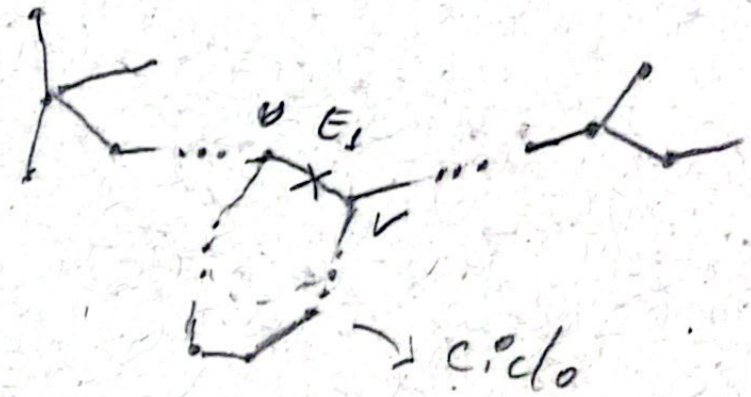 E₁
v
ciclo